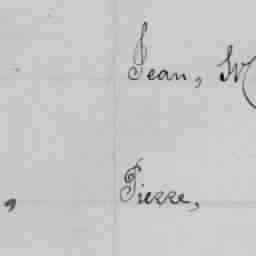 Jean,
Pierre,